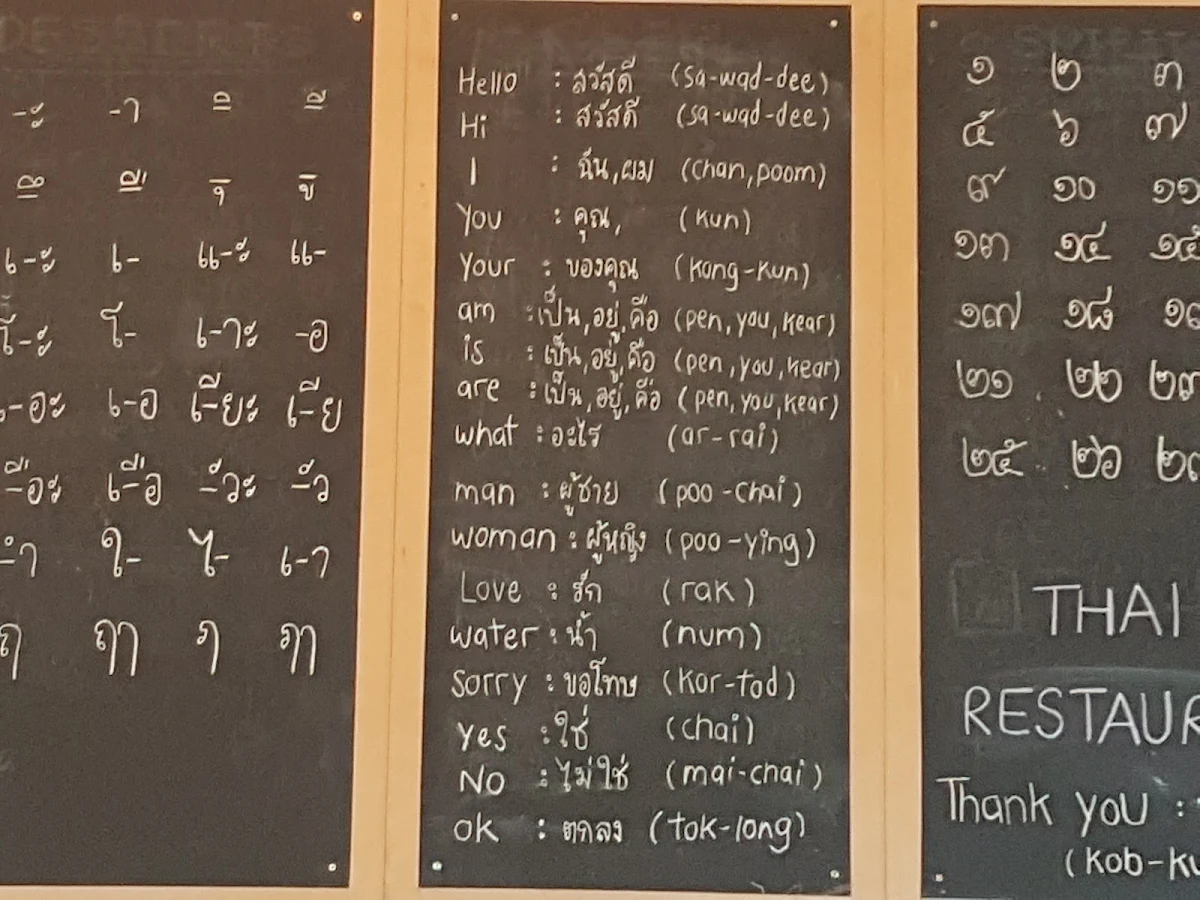 DESSERTS
-ะ -า -ิ -ี
-ึ -ื -ุ -ู
เ-ะ เ- แ-ะ แ-
โ-ะ โ- เ-าะ -อ
เ-อะ เ-อ เ-ียะ เ-ีย
-ือะ เ-ือ -ัวะ -ัว
-ำ ใ- ไ- เ-า
ฤ ฤๅ ฦ ฦๅ
Hello : สวัสดี (sa-wad-dee)
Hi : สวัสดี (sa-wad-dee)
I : ฉัน,ผม (chan,poom)
You : คุณ, (kun)
Your : ของคุณ (kong-kun)
am : เป็น,อยู่,คือ (pen,you,kear)
is : เป็น,อยู่,คือ (pen,you,kear)
are : เป็น,อยู่,คือ (pen,you,kear)
what : อะไร (ar-rai)
man : ผู้ชาย (poo-chai)
woman : ผู้หญิง (poo-ying)
Love : รัก (rak)
water : น้ำ (num)
sorry : ขอโทษ (kor-tod)
yes : ใช่ (chai)
No : ไม่ใช่ (mai-chai)
ok : ตกลง (tok-long)
๑ ๒ ๓
๕ ๖ ๗
๙ ๑๐ ๑๑
๑๓ ๑๔ ๑๕
๑๗ ๑๘
๒๑ ๒๒ ๒๓
๒๕ ๒๖
THAI
RESTAUR
Thank you :
(kob-ku